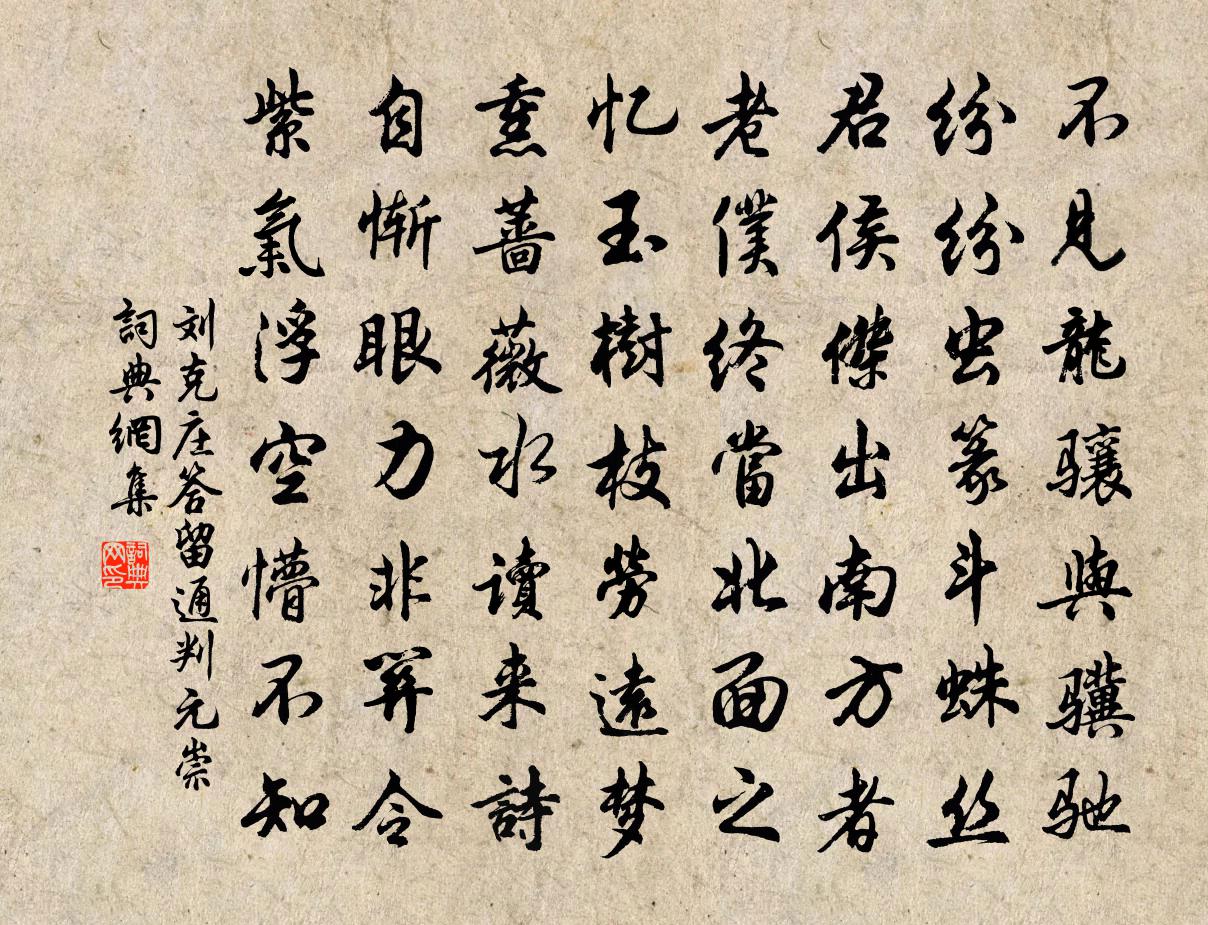 不见龍骧與骥驰
纷纷虫篆斗蛛丝
君侯傑出南方者
老僕终當北面之
忆玉樹枝劳遠梦
熏薔薇水讀来詩
自惭眼力非关令
紫氣浮空懵不知
刘克庄答留通判元崇
詞典網集
詞典
网印